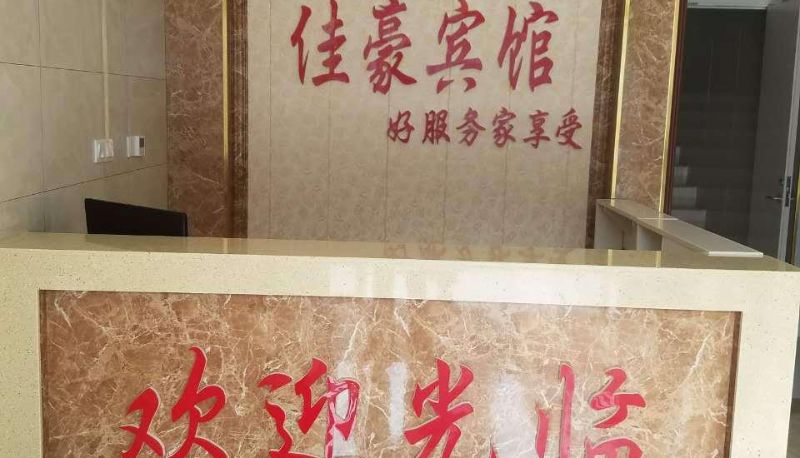 佳豪宾馆
好服务家享受
欢迎光临